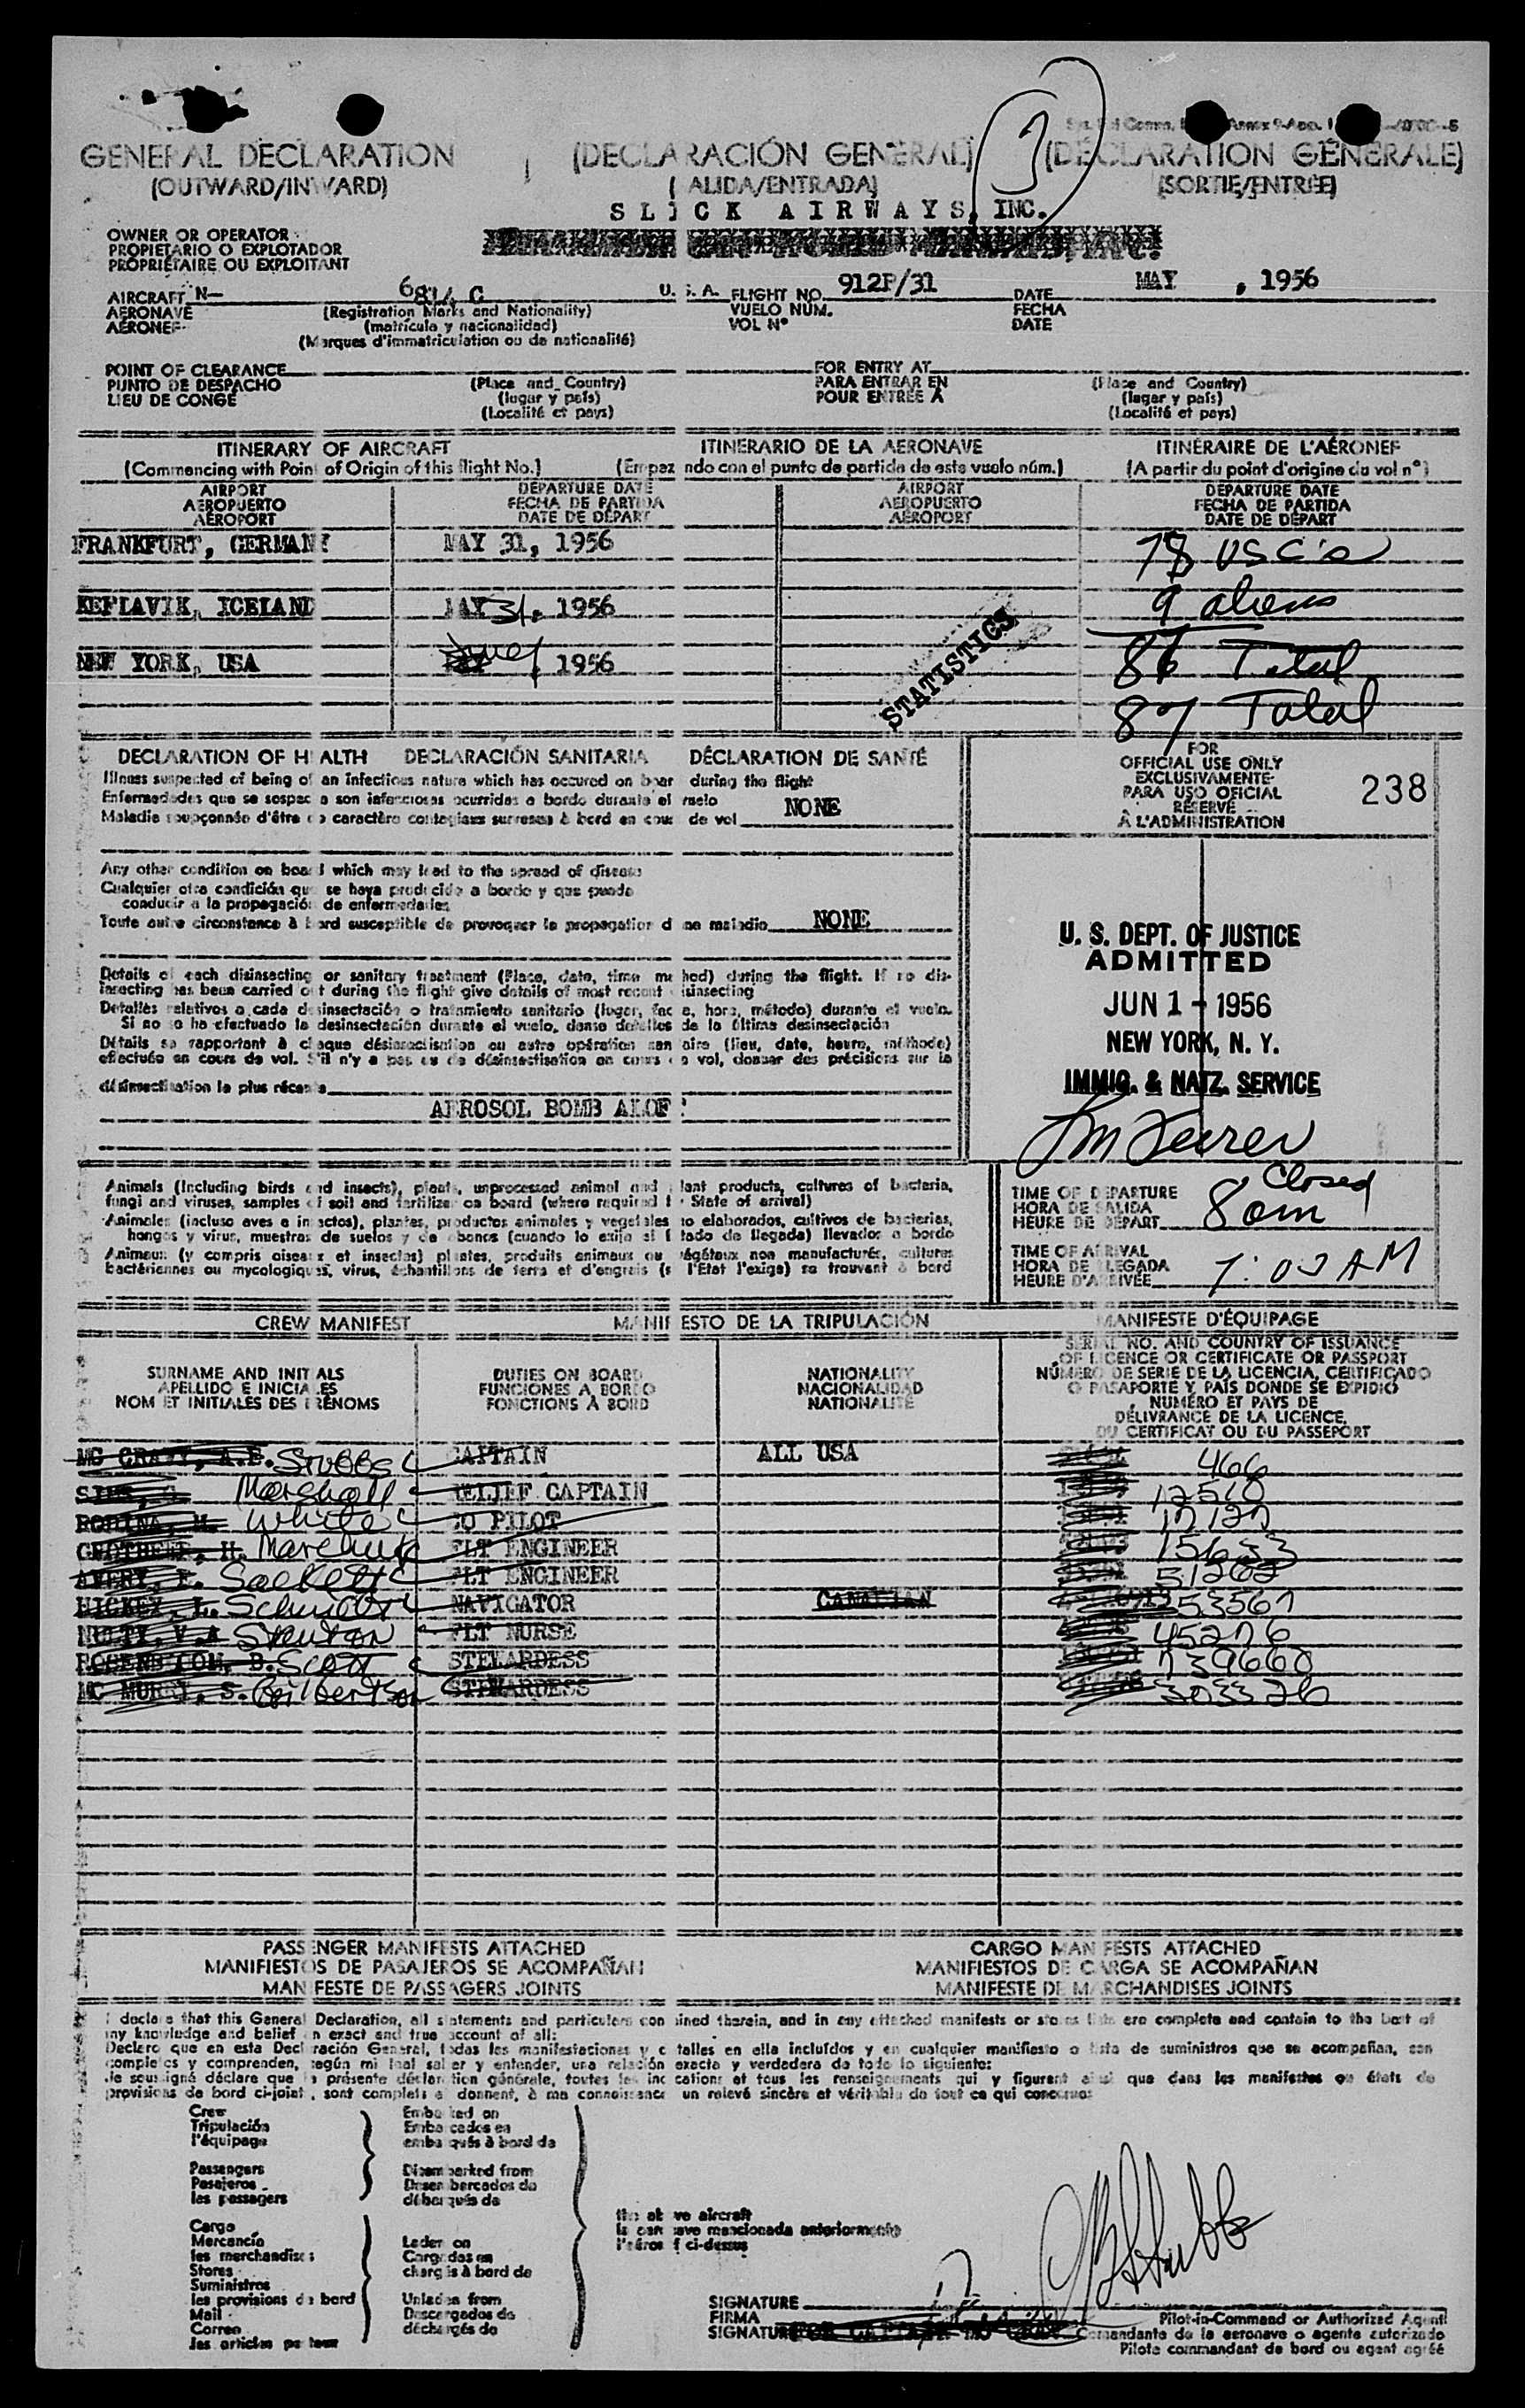 GENERAL DECLARATION (DECLARACIÓN GENERAL) (DÉCLARATION GÉNÉRALE)
(OUTWARD/INWARD) (SALIDA/ENTRADA) (SORTIE/ENTRÉE)
SLICK AIRWAYS, INC.
OWNER OR OPERATOR
PROPIETARIO O EXPLOTADOR
PROPRIÉTAIRE OU EXPLOITANT
AIRCRAFT N- 6814 C U. S. A. FLIGHT NO. 912P/31 DATE MAY , 1956
AERONAVE (Registration Marks and Nationality) VUELO NÚM. FECHA
AÉRONEF (matrícula y nacionalidad) VOL Nº DATE
(Marques d'immatriculation ou de nationalité)
POINT OF CLEARANCE FOR ENTRY AT
PUNTO DE DESPACHO (Place and Country) PARA ENTRAR EN (Place and Country)
LIEU DE CONGÉ (lugar y país) POUR ENTRÉE À (lugar y país)
(Localité et pays) (Localité et pays)
ITINERARY OF AIRCRAFT ITINERARIO DE LA AERONAVE ITINÉRAIRE DE L'AÉRONEF
(Commencing with Point of Origin of this flight No.) (Empezando con el punto de partida de este vuelo núm.) (A partir du point d'origine du vol nº)
AIRPORT DEPARTURE DATE AIRPORT DEPARTURE DATE
AEROPUERTO FECHA DE PARTIDA AEROPUERTO FECHA DE PARTIDA
AÉROPORT DATE DE DÉPART AÉROPORT DATE DE DÉPART
FRANKFURT, GERMANY MAY 31, 1956 78 USC's
KEFLAVIK, ICELAND MAY 31, 1956 9 aliens
NEW YORK, USA June 1, 1956 STATISTICS 86 Total
87 Total
DECLARATION OF HEALTH DECLARACIÓN SANITARIA DÉCLARATION DE SANTÉ
Illness suspected of being of an infectious nature which has occured on board during the flight
Enfermedades que se sospecha son infecciosas ocurridas a bordo durante el vuelo
Maladie soupçonnée d'être de caractère contagieux survenue à bord en cours de vol NONE
FOR
OFFICIAL USE ONLY
EXCLUSIVAMENTE
PARA USO OFICIAL
RÉSERVÉ
À L'ADMINISTRATION
238
Any other condition on board which may lead to the spread of disease
Cualquier otra condición que se haya producido a bordo y que pueda
conducir a la propagación de enfermedades
Toute autre circonstance à bord susceptible de provoquer la propagation d'une maladie NONE
Details of each disinsecting or sanitary treatment (Place, date, time, method) during the flight. If no dis-
insecting has been carried out during the flight give details of most recent disinsecting
Detalles relativos a cada desinsectación o tratamiento sanitario (lugar, fecha, hora, método) durante el vuelo.
Si no se ha efectuado la desinsectación durante el vuelo, dense detalles de la última desinsectación
Détails se rapportant à chaque désinsectisation ou autre opération sanitaire (lieu, date, heure, méthode)
effectuée en cours de vol. S'il n'y a pas eu de désinsectisation en cours de vol, donner des précisions sur la
désinsectisation la plus récente
AEROSOL BOMB ALOFT
U. S. DEPT. OF JUSTICE
ADMITTED
JUN 1 - 1956
NEW YORK, N. Y.
IMMIG. & NATZ. SERVICE
Animals (Including birds and insects), plants, unprocessed animal and plant products, cultures of bacteria,
fungi and viruses, samples of soil and fertilizer on board (where required by State of arrival)
Animales (incluso aves e insectos), plantas, productos animales y vegetales no elaborados, cultivos de bacterias,
hongos y virus, muestras de suelos y de abonos (cuando lo exija el Estado de llegada) llevados a bordo
Animaux (y compris oiseaux et insectes) plantes, produits animaux ou végétaux non manufacturés, cultures
bactériennes ou mycologiques, virus, échantillons de terre et d'engrais (si l'Etat l'exige) se trouvant à bord
Closed
TIME OF DEPARTURE
HORA DE SALIDA
HEURE DE DÉPART 8am
TIME OF ARRIVAL
HORA DE LLEGADA
HEURE D'ARRIVÉE 7:00 AM
CREW MANIFEST MANIFIESTO DE LA TRIPULACIÓN MANIFESTE D'ÉQUIPAGE
SURNAME AND INITIALS DUTIES ON BOARD NATIONALITY
APELLIDO E INICIALES FUNCIONES A BORDO NACIONALIDAD
NOM ET INITIALES DES PRÉNOMS FONCTIONS À BORD NATIONALITÉ
SERIAL NO. AND COUNTRY OF ISSUANCE
OF LICENCE OR CERTIFICATE OR PASSPORT
NÚMERO DE SERIE DE LA LICENCIA, CERTIFICADO
O PASAPORTE Y PAÍS DONDE SE EXPIDIÓ
NUMÉRO ET PAYS DE
DÉLIVRANCE DE LA LICENCE,
DU CERTIFICAT OU DU PASSEPORT
MC CRARY, A.E. Stubbs CAPTAIN ALL USA 466
SIMS, Marshall RELIEF CAPTAIN 12510
RODINA, M. White CO PILOT 17127
H. Marchuk FLT ENGINEER 151633
AVERY, Sackett FLT ENGINEER 51262
HICKEY, L. Schneider NAVIGATOR CANADIAN 253567
NULTY, V.A Stanton FLT NURSE 45276
ROSENBLOOM, B. Scott STEWARDESS 739660
MC MURRY, S. Gilbertson STEWARDESS 303326
PASSENGER MANIFESTS ATTACHED CARGO MANIFESTS ATTACHED
MANIFIESTOS DE PASAJEROS SE ACOMPAÑAN MANIFIESTOS DE CARGA SE ACOMPAÑAN
MANIFESTE DE PASSAGERS JOINTS MANIFESTE DE MARCHANDISES JOINTS
I declare that this General Declaration, all statements and particulars contained therein, and in any attached manifests or stores lists are complete and contain to the best of
my knowledge and belief an exact and true account of all:
Declaro que en esta Declaración General, todas las manifestaciones y detalles en ella incluídos y en cualquier manifiesto o lista de suministros que se acompañan, son
completos y comprenden, según mi leal saber y entender, una relación exacta y verdadera de todo lo siguiente:
Je soussigné déclare que la présente déclaration générale, toutes les indications et tous les renseignements qui y figurent ainsi que dans les manifestes ou états de
provisions de bord ci-joint, sont complets et donnent, à ma connaissance un relevé sincère et véritable de tout ce qui concerne:
Crew Embarked on
Tripulación Embarcados en
l'équipage embarqués à bord de
Passengers Disembarked from
Pasajeros Desembarcados de
les passagers débarqués de
the above aircraft
la aeronave mencionada anteriormente
l'aéronef ci-dessus
Cargo
Mercancía Laden on
les merchandises Cargados en
Stores chargés à bord de
Suministros
les provisions de bord Unladen from
Mail Descargados de
Correo déchargés de
les articles postaux
JB Stubbs
SIGNATURE
FIRMA Pilot-in-Command or Authorized Agent
SIGNATURE Comandante de la aeronave o agente autorizado
Pilote commandant de bord ou agent agréé